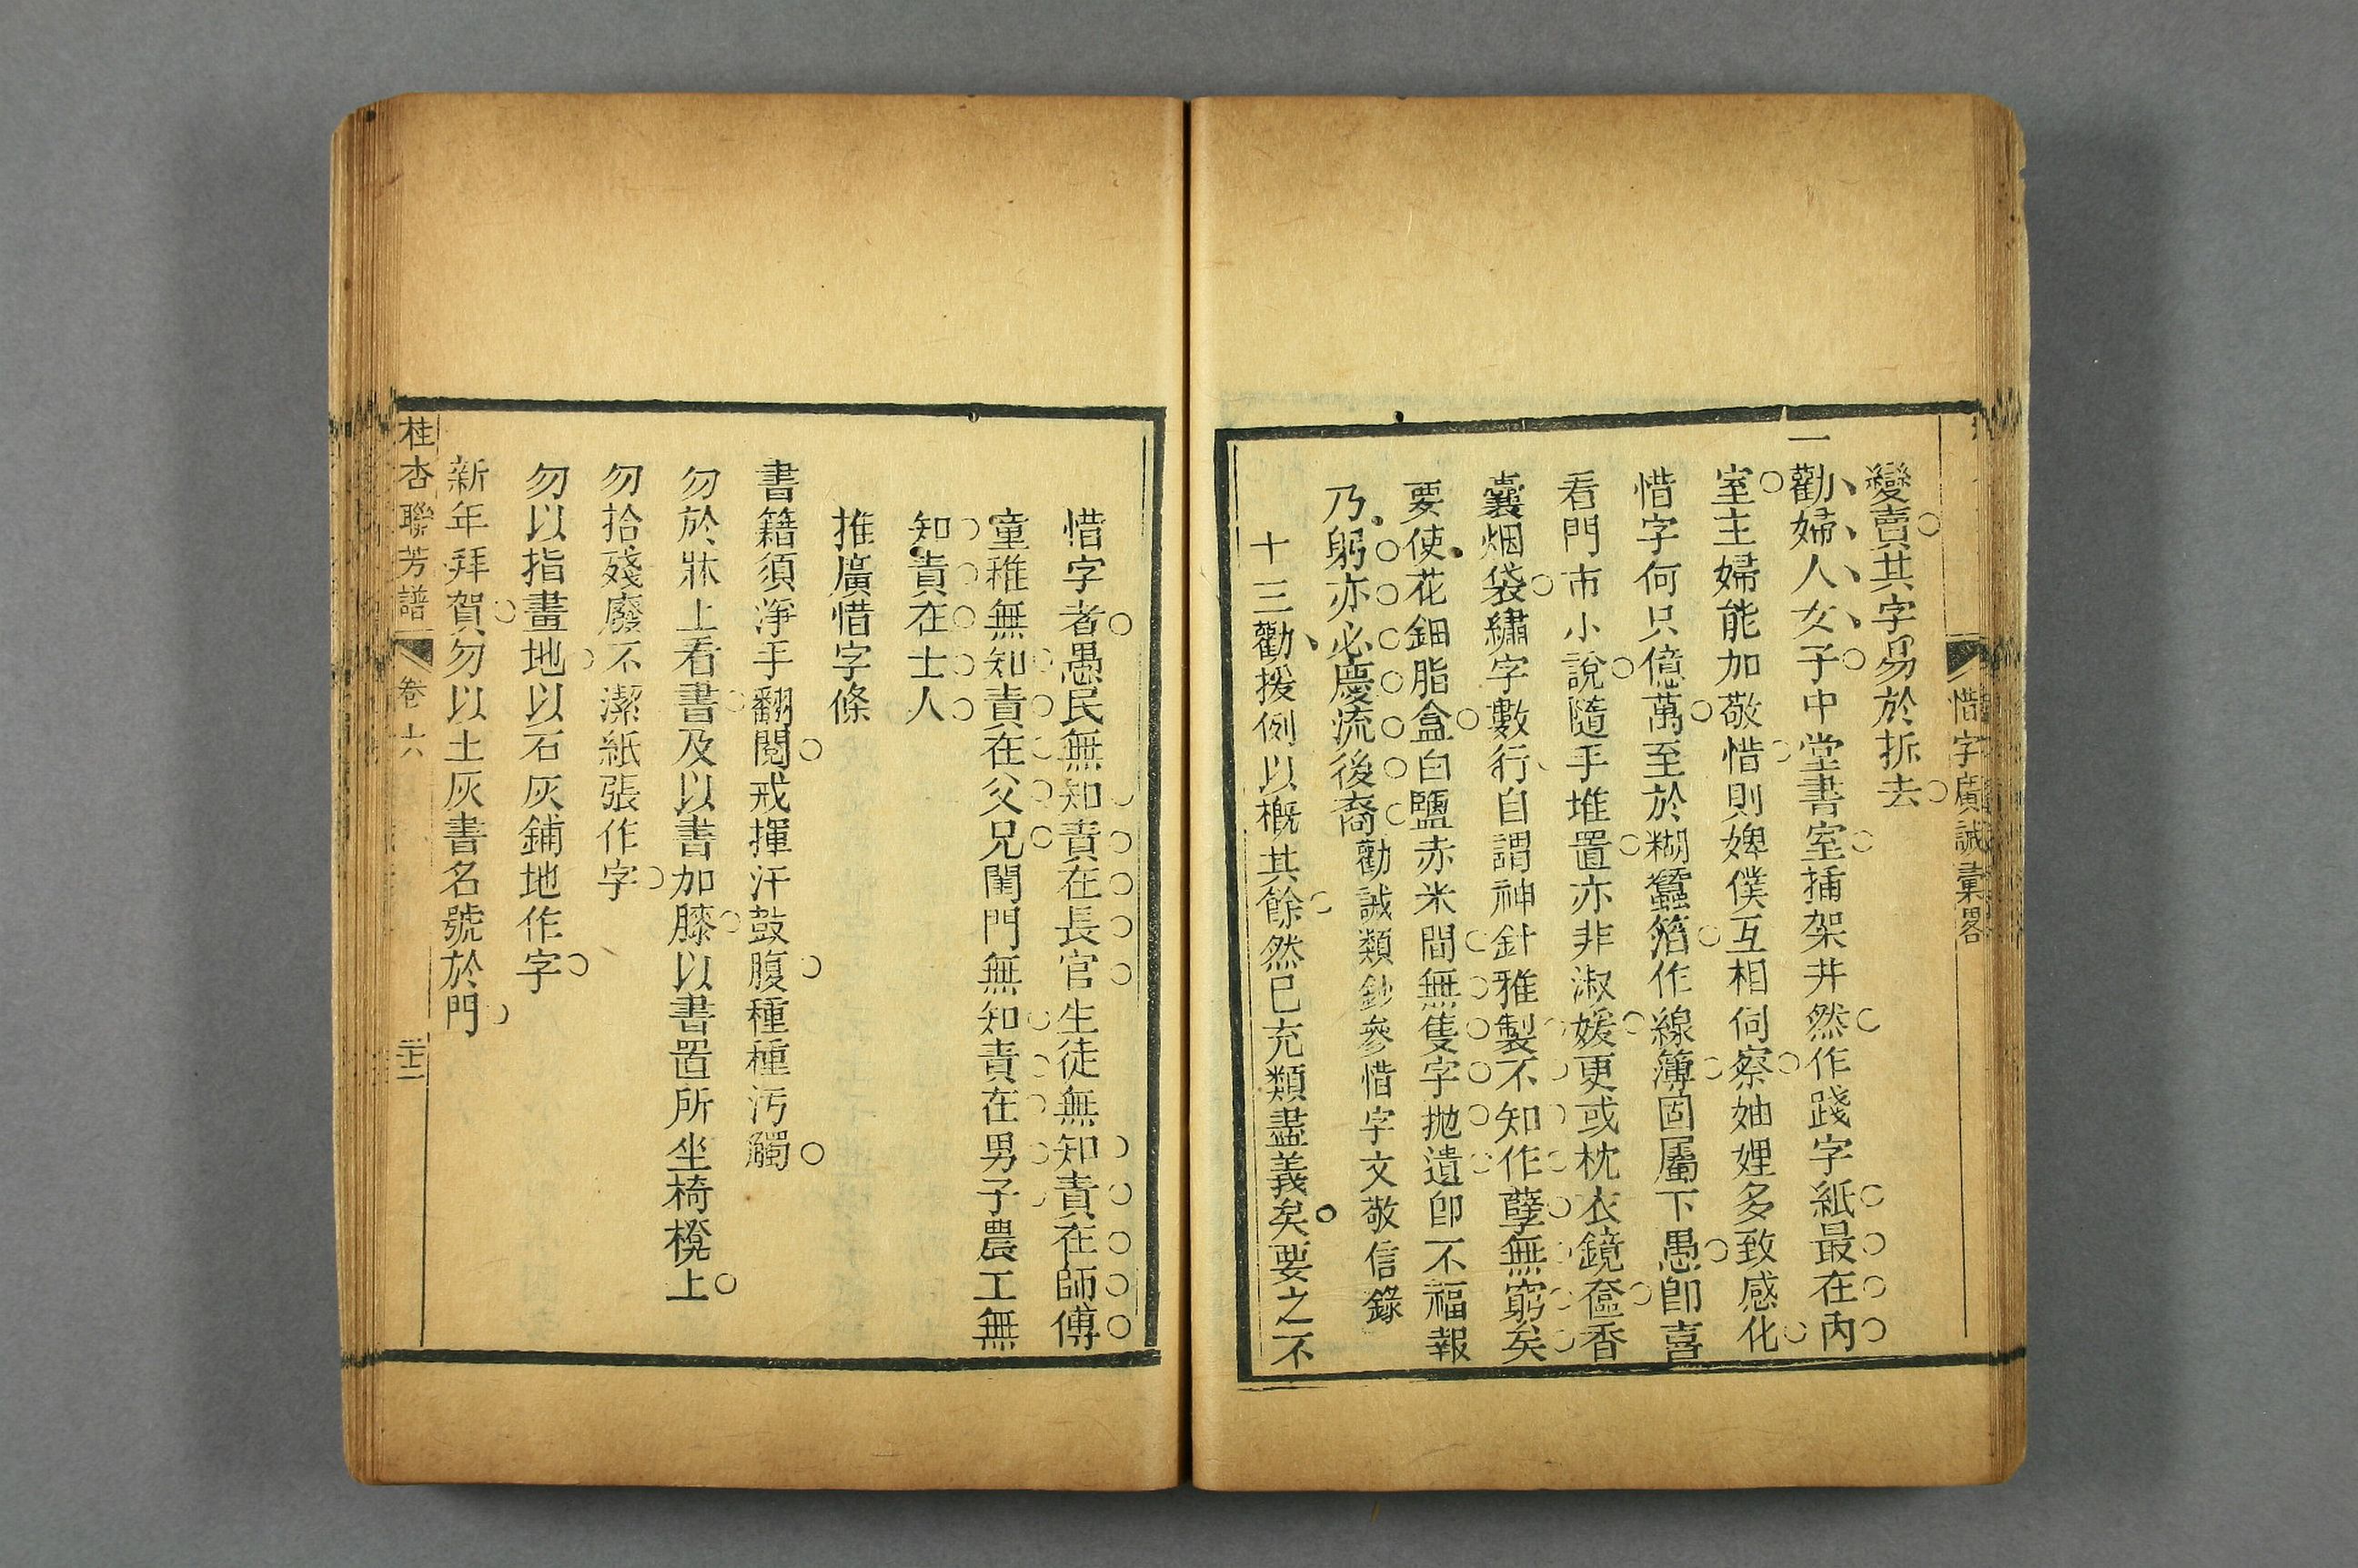 惜字廣誡彙畧
變賣其字易於拆去
一勸婦人女子中堂書室插架井然作踐字紙最在內
室主婦能加敬惜則婢僕互相伺察妯娌多致感化
惜字何只億萬至於糊蠶箔作線簿固屬下愚卽喜
看門市小說隨手堆置亦非淑媛更或枕衣鏡奩香
囊烟袋繡字數行自謂神針雅製不知作孽無窮矣
要使花鈿脂盒白鹽赤米間無隻字拋遺卽不福報
乃躬亦必慶流後裔勸誡類鈔參惜字文敬信錄
十三勸援例以槪其餘然已充類盡義矣要之不
惜字者愚民無知責在長官生徒無知責在師傅
童稚無知責在父兄閨門無知責在男子農工無
知責在士人
推廣惜字條
書籍須淨手翻閱戒揮汗鼓腹種種污觸
勿於牀上看書及以書加膝以書置所坐椅櫈上
勿拾殘廢不潔紙張作字
勿以指畫地以石灰鋪地作字
新年拜賀勿以土灰書名號於門
桂杏聯芳譜 卷六